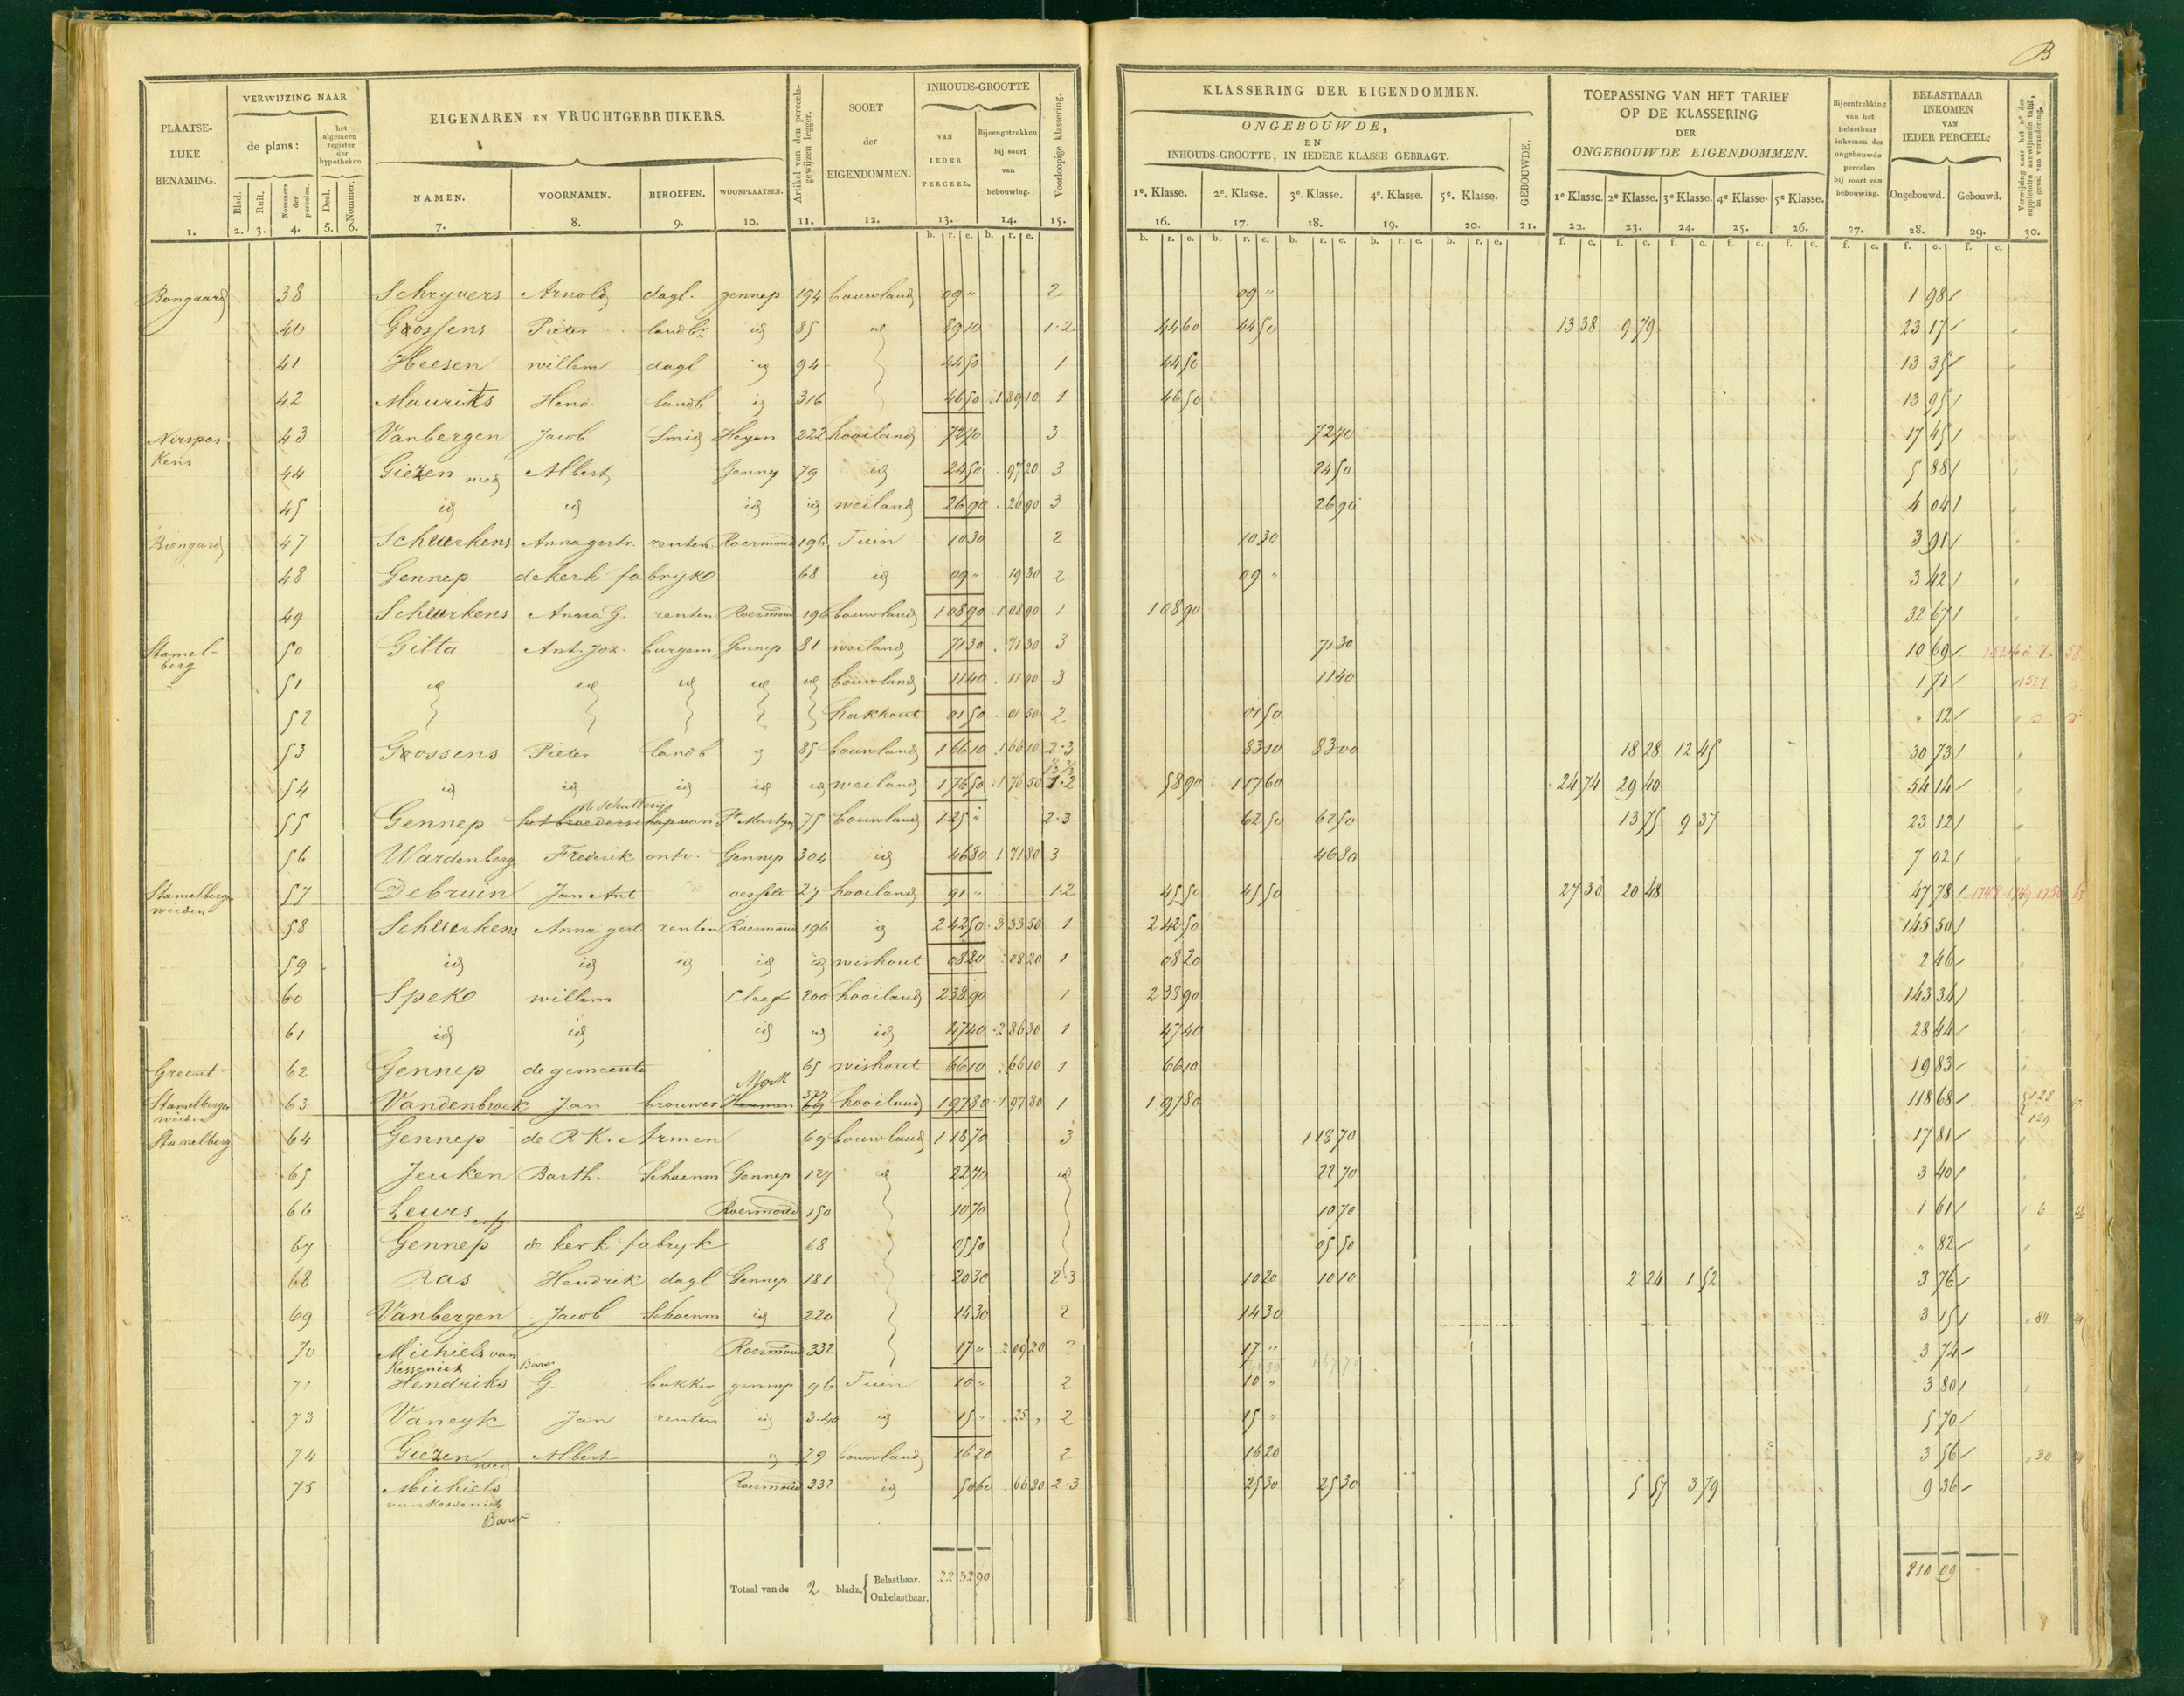 B
PLAATSE-
LIJKE
BENAMING.
VERWIJZING NAAR
de plans:
het
algemeen
register
der
hypotheken
Blad.
Ruit.
Nommers
der
perceelen.
Deel.
Nommer.
EIGENAREN EN VRUCHTGEBRUIKERS.
NAMEN.
VOORNAMEN.
BEROEPEN.
WOONPLAATSEN.
Artikel van den perceels-
gewijzen legger.
SOORT
der
EIGENDOMMEN.
INHOUDS-GROOTTE
VAN
IEDER
PERCEEL.
Bijeengetrokken
bij soort
van
bebouwing.
Voorloopige klassering.
KLASSERING DER EIGENDOMMEN.
ONGEBOUWDE,
EN
INHOUDS-GROOTTE, IN IEDERE KLASSE GEBRAGT.
1e. Klasse. 2e. Klasse. 3e. Klasse. 4e. Klasse. 5e. Klasse.
GEBOUWDE.
TOEPASSING VAN HET TARIEF
OP DE KLASSERING
DER
ONGEBOUWDE EIGENDOMMEN.
1e Klasse. 2e Klasse. 3e Klasse. 4e Klasse. 5e Klasse.
Bijeentrekking
van het
belastbaar
inkomen der
ongebouwde
percelen
bij soort van
bebouwing.
BELASTBAAR
INKOMEN
VAN
IEDER PERCEEL:
Ongebouwd. Gebouwd.
Verwijzing naar het no. der
suppletoire aanwijzende tafel,
in geval van verandering.
1. 2. 3. 4. 5. 6. 7. 8. 9. 10. 11. 12. 13. 14. 15. 16. 17. 18. 19. 20. 21. 22. 23. 24. 25. 26. 27. 28. 29. 30.
Bongaard 38 Schryvers Arnold dagl. gennep 194 bouwland 09 " 2 09 " 1 98
40 Goossens Pieter landbr id 85 id 89 10 1-2 44 60 44 50 13 38 9 79 23 17
41 Heesen willem dagl id 94 44 50 1 44 50 13 35
42 Maurits Hend. landb id 316 46 50 1 89 10 1 46 50 13 95
Nirspas Kens 43 Vanbergen Jacob Smid Heyen 222 hooiland 72 70 3 72 70 17 45
44 Giezen wed Albert Gennep 79 id 24 50 97 20 3 24 50 5 88
45 id id id id weiland 26 90 26 90 3 26 90 4 04
Bongard 47 Scheurkens Anna gertr. renten. Roermond 196 Tuin 10 30 2 10 30 3 91
48 Gennep de kerk fabryke 68 id 09 " 19 30 2 09 " 3 42
49 Scheurkens Anna G. renten Roermond 196 bouwland 1 08 90 1 08 90 1 1 08 90 32 67
Stamel-
berg 50 Gilta Ant. Joz. burgem Gennep 81 weiland 71 30 71 30 3 71 30 10 69
51 id id id id id bouwland 11 40 11 40 3 11 40 1 71
52 hakhout 01 50 01 50 2 01 50 " 12
53 Goossens Pieter landb id 85 bouwland 1 66 10 1 66 10 2-3 83 10 83 00 18 28 12 45 30 73
54 id id id id id weiland 1 76 50 1 76 50 1-2 58 90 1 17 60 24 74 29 40 54 14
de schutterij
55 Gennep het broederschap van St Martyn 75 bouwland 1 25 " 2-3 62 50 62 50 13 75 9 37 23 12
56 Wardenberg Frederik ontv. Gennep 304 id 46 80 1 71 80 3 46 80 7 02
Stamelberger
weiden 57 Debruin Jan Ant 27 hooiland 91 " 1-2 45 50 45 50 27 30 20 48 47 78
58 Scheurkens Anna gert renten Roermond 196 id 2 42 50 3 33 50 1 2 42 50 145 50
59 id id id id id wishout 08 20 08 20 1 08 20 2 46
60 Speko willem Cleef 200 hooiland 2 38 90 1 2 38 90 143 34
61 id id id id id 47 40 2 86 30 1 47 40 28 44
Greent 62 Gennep de gemeente 65 wishout 66 10 66 10 1 66 10 19 83
Mook
Stamelberger
weiden 63 Vandenbroek Jan brouwer hooiland 1 97 80 1 97 80 1 1 97 80 118 68 128
129
Stamelberg 64 Gennep de R K. Armen 69 bouwland 1 18 70 3 1 18 70 17 81
65 Jeuken Barth. Schoenm Gennep 127 id 22 70 id 22 70 3 40
66 Leurs Roermond 150 10 70 10 70 1 61
67 Gennep de kerk fabryk 68 05 50 05 50 " 82
68 Ras Hendrik dagl Gennep 181 20 30 2-3 10 20 10 10 2 24 1 52 3 76
69 Vanbergen Jacob Schoenm id 220 14 30 2 14 30 3 15 84
70 Michiels van
Kessenich Baron Roermond 332 17 " 2 09 20 2 17 " 3 74
71 Hendriks G. bakker gennep 96 Tuin 10 " 2 10 " 3 80
73 Vaneyk Jan renten id 340 id 15 " 25 " 2 15 " 5 70
74 Giezen wed Albert id 79 bouwland 16 20 2 16 20 3 56 30
75 Michiels
van Kessenich
Baron Roermond 332 id 50 60 66 80 2-3 25 30 25 30 5 57 3 79 9 36
Totaal van de 2 bladz. { Belastbaar. 22 32 90
Onbelastbaar.
810 09